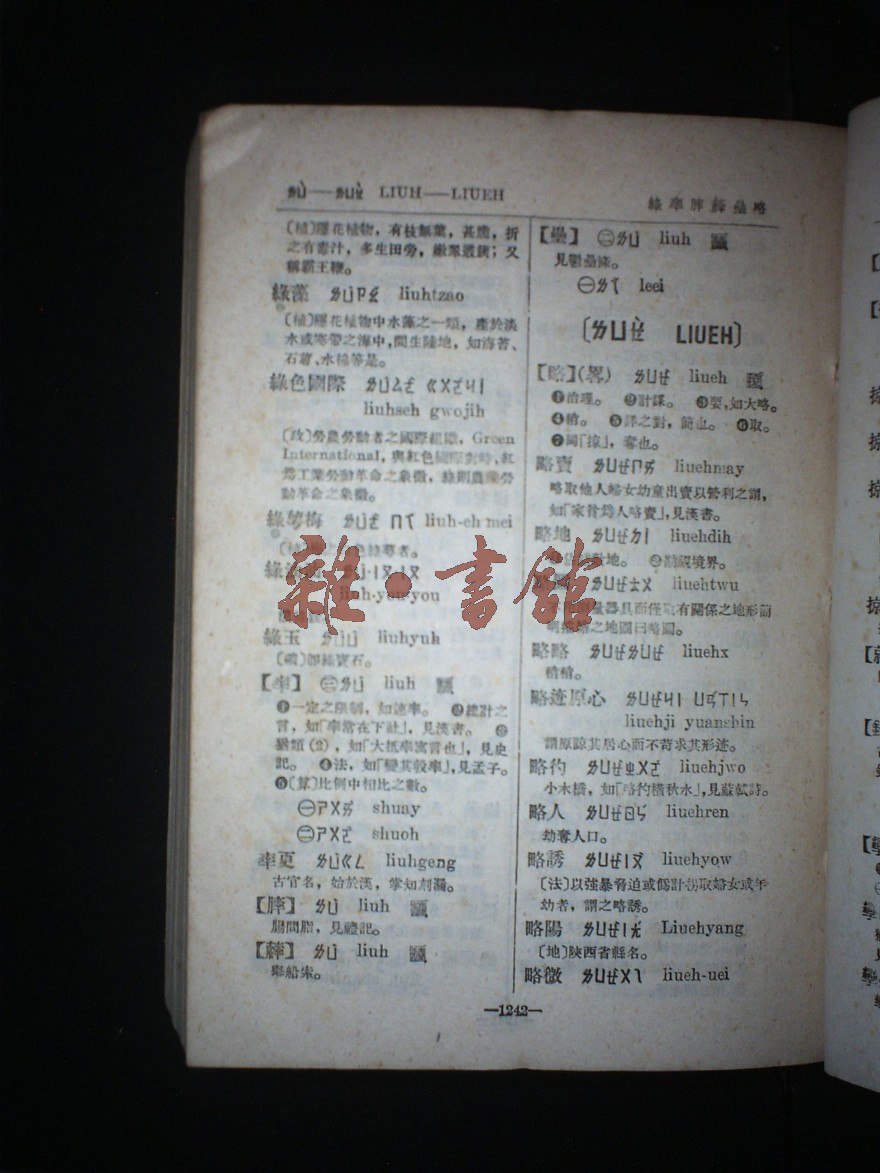 ㄌㄩ——ㄌㄩㄝ LIUH——LIUEH
綠率膟繂壘略
〔植〕隱花植物，有枝無葉，甚脆，折
之有毒汁，多生田旁，又
稱霸王鞭。
綠藻 ㄌㄩㄗㄠ liuhtzao
〔植〕隱花植物中水藻之一類，產於淡
水或寒帶之海中，間生陸地，如海苔、
石蓴、水棉等是。
綠色國際 ㄌㄩㄙㄜ ㄍㄨㄛㄐㄧ
liuhseh gwojih
〔政〕勞農勞動者之國際組織，Green
International，與紅色國際對峙，紅
爲工業勞動革命之象徵，綠則農業勞
動革命之象徵。
綠萼梅 ㄌㄩㄜ ㄇㄟ liuh-eh mei
色綠萼者。
綠
liuh-you you
綠玉 ㄌㄩㄩ liuhyuh
〔礦〕卽綠寶石。
【率】 ㊂ㄌㄩ liuh
❶一定之限制，如速率。 ❷總計之
言，如「率常在下社」，見漢書。 ❸
類(2)，如「大抵率寓言也」，見史
記。 ❹法，如「變其彀率」，見孟子。
❺〔算〕比例中相比之數。
㊀ㄕㄨㄞ shuay
㊁ㄕㄨㄛ shuoh
率更 ㄌㄩㄍㄥ liuhgeng
古官名，始於漢，掌知刻漏。
【膟】 ㄌㄩ liuh
腸間脂，見禮記。
【繂】 ㄌㄩ liuh
舉船索。
【壘】 ㊁ㄌㄩ liuh
見鬱壘條。
㊀ㄌㄟ leei
〔ㄌㄩㄝ LIUEH〕
【略】(畧) ㄌㄩㄝ liueh
❶治理。 ❷計謀。 ❸要，如大略。
❹稍。 ❺詳之對，簡也。 ❻取。
❼同「掠」，奪也。
略賣 ㄌㄩㄝㄇㄞ liuehmay
略取他人婦女幼童出賣以營利之謂，
如「家皆爲人略賣」，見漢書。
略地 ㄌㄩㄝㄉㄧ liuehdih
地。 ❷巡視境界。
ㄌㄩㄝㄊㄨ liuehtwu
量器具而僅取有關係之地形簡
之地圖曰略圖。
略略 ㄌㄩㄝㄌㄩㄝ liuehx
稍稍。
略迹原心 ㄌㄩㄝㄐㄧ ㄩㄢㄒㄧㄣ
liuehji yuanshin
謂原諒其居心而不苛求其形迹。
略彴 ㄌㄩㄝㄓㄨㄛ liuehjwo
小木橋，如「略彴橫秋水」，見蘇軾詩。
略人 ㄌㄩㄝㄖㄣ liuehren
劫奪人口。
略誘 ㄌㄩㄝㄧㄡ liuehyow
〔法〕以強暴脅迫或僞計誘取婦女或年
幼者，謂之略誘。
略陽 ㄌㄩㄝㄧㄤ Liuehyang
〔地〕陝西省縣名。
略微 ㄌㄩㄝㄨㄟ liueh-uei
—1242—
雜·書館